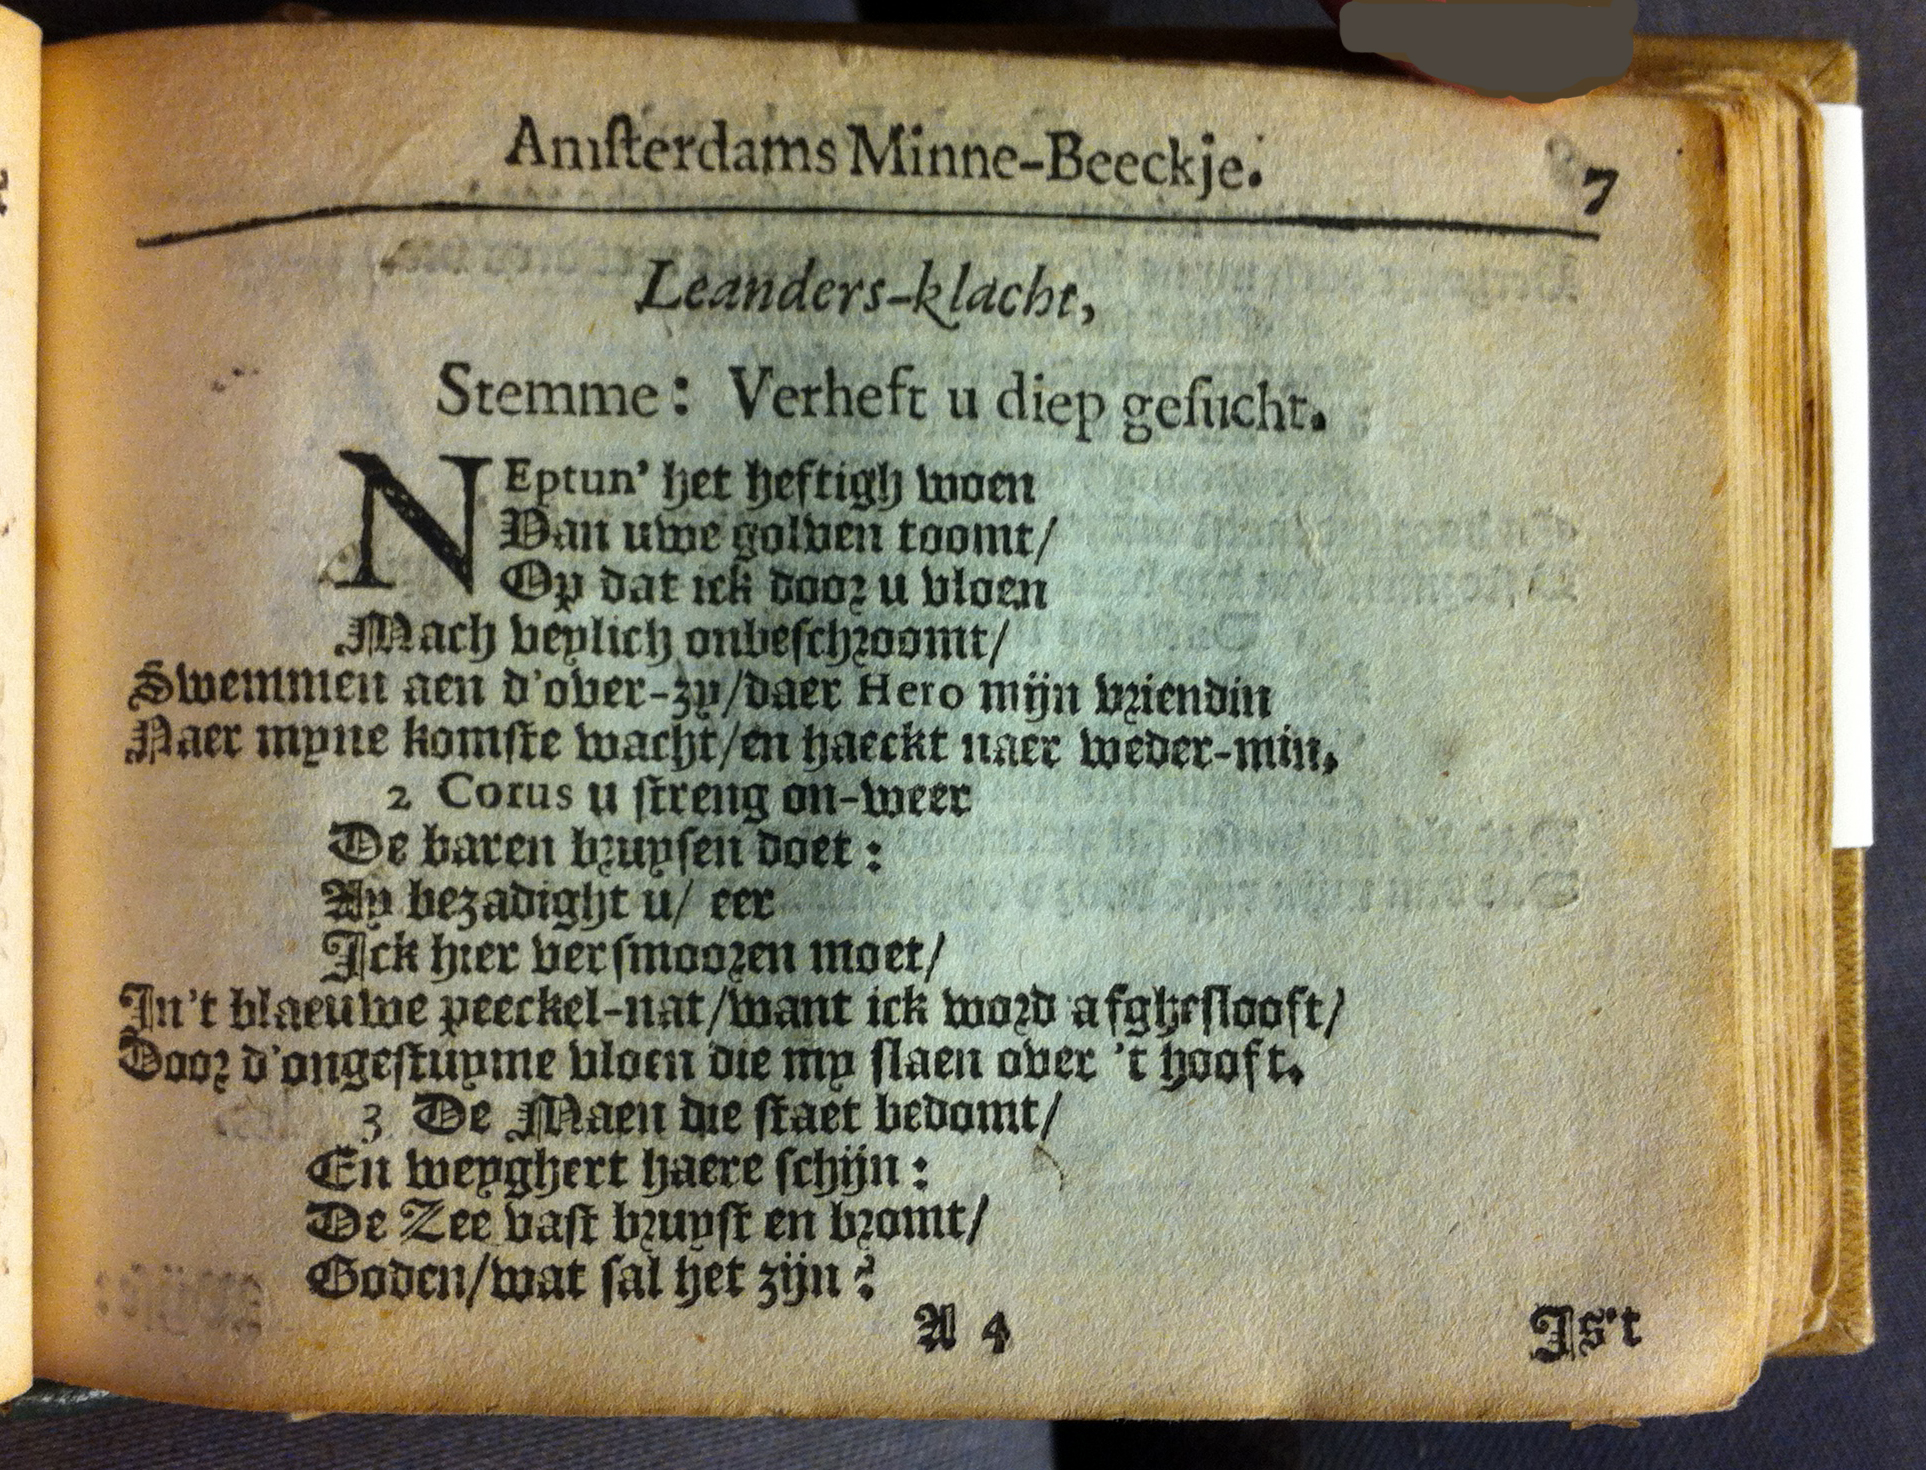 Amſterdams Minne-Beeckje. 7
Leanders-klacht,
Stemme: Verheft u diep geſucht.
NEptun' het heftigh woen
Van uwe golven toomt/
Op dat ick door u vloen
Mach veylich onbeſchroomt/
Swemmen aen d'over-zy/daer Hero mijn vriendin
Naer myne komſte wacht/en haeckt naer weder-min.
2 Corus u ſtreng on-weer
De baren bruyſen doet:
Ay bezadight u/ eer
Ick hier verſmooren moet/
In't blaeuwe peeckel-nat/want ick word afgheſlooft/
Door d'ongeſtuyme vloen die my ſlaen over 't hooft.
3 De Maen die ſtaet bedomt/
En weyghert haere ſchijn:
De Zee vaſt bruyſt en bromt/
Goden/wat ſal het zijn?
A 4 Is't